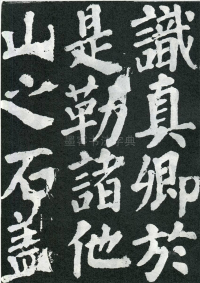 識真卿於
是勒諸他
山之石蓋